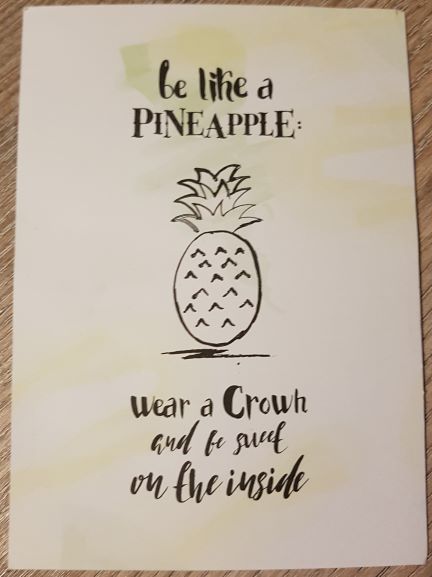 be like a
PINEAPPLE:
wear a Crown
and be sweet
on the inside